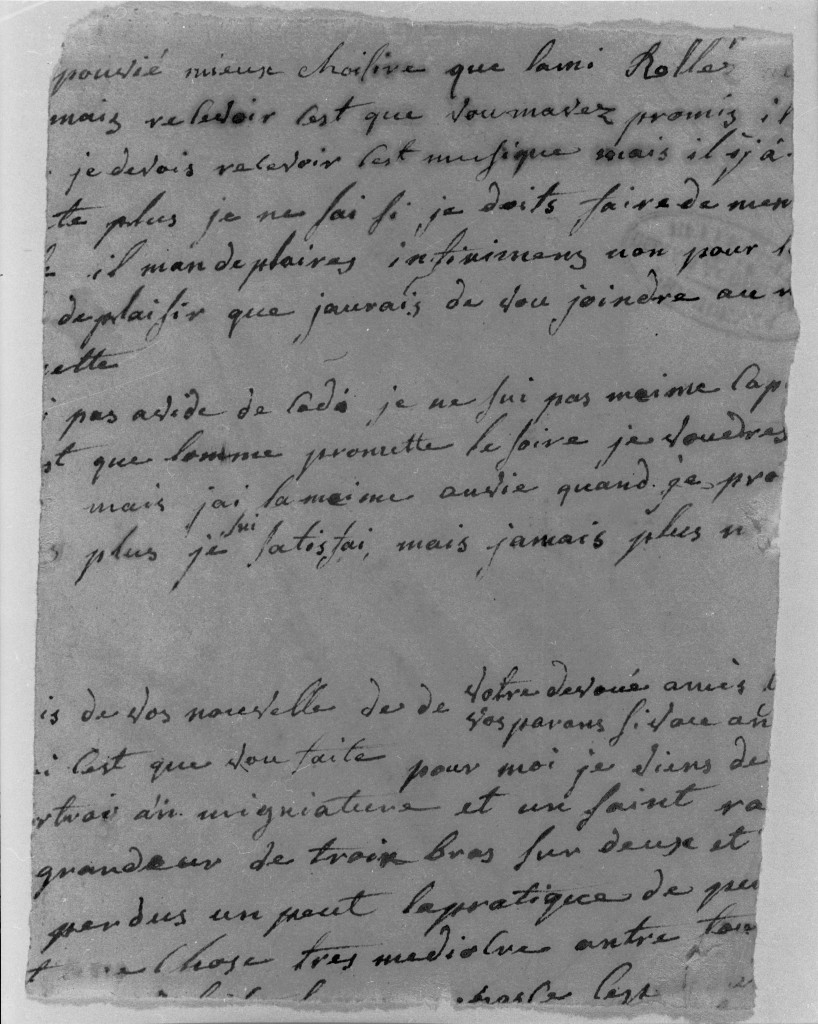 pouvié mieux choisire que lami Rollé
mais recevoir cest que voumavez promis il
je devois recevoir cest musique mais il ÿ a
te plus je ne sai si je doits faire de men
il man deplaires infinimens non pour l
deplaisir que jaurais de vou joindre au
ette
pas avide de cado je ne sui pas meime cap
st que lomme promette le foire je vouedres
mais jai la meime anvie quand je pro
s plus je sui satisfai, mais jamais plus n
is de vos nouvelle de de votre devoué amis
vos parans si vou an
i cest que vou faite pour moi je viens de
rtrai an migniature et un saint ra
grandeur de troix bras sur deuxe et
perdus un peut lapratique de peu
chose tres mediocre antre tou